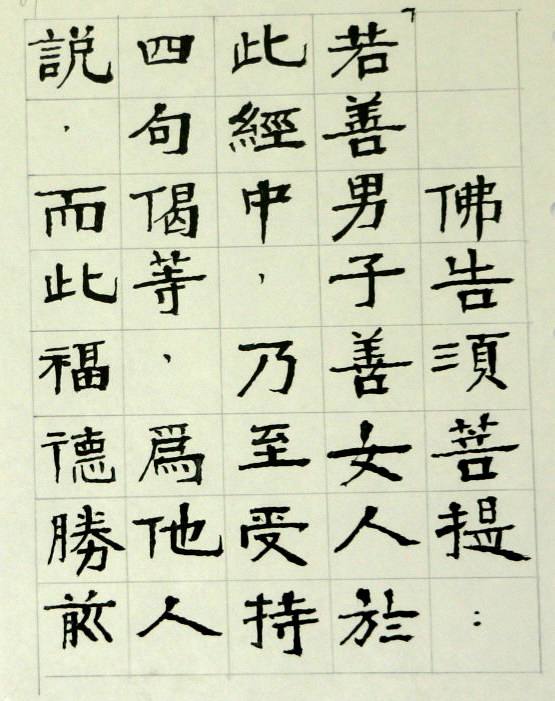 佛告須菩提：
「若善男子善女人於
此經中，乃至受持
四句偈等，爲他人
説，而此福德勝前